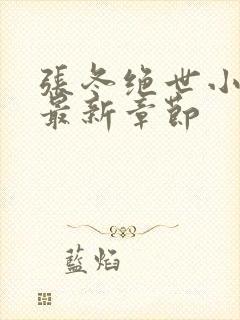 張冬绝世小
最新章節
藍焰